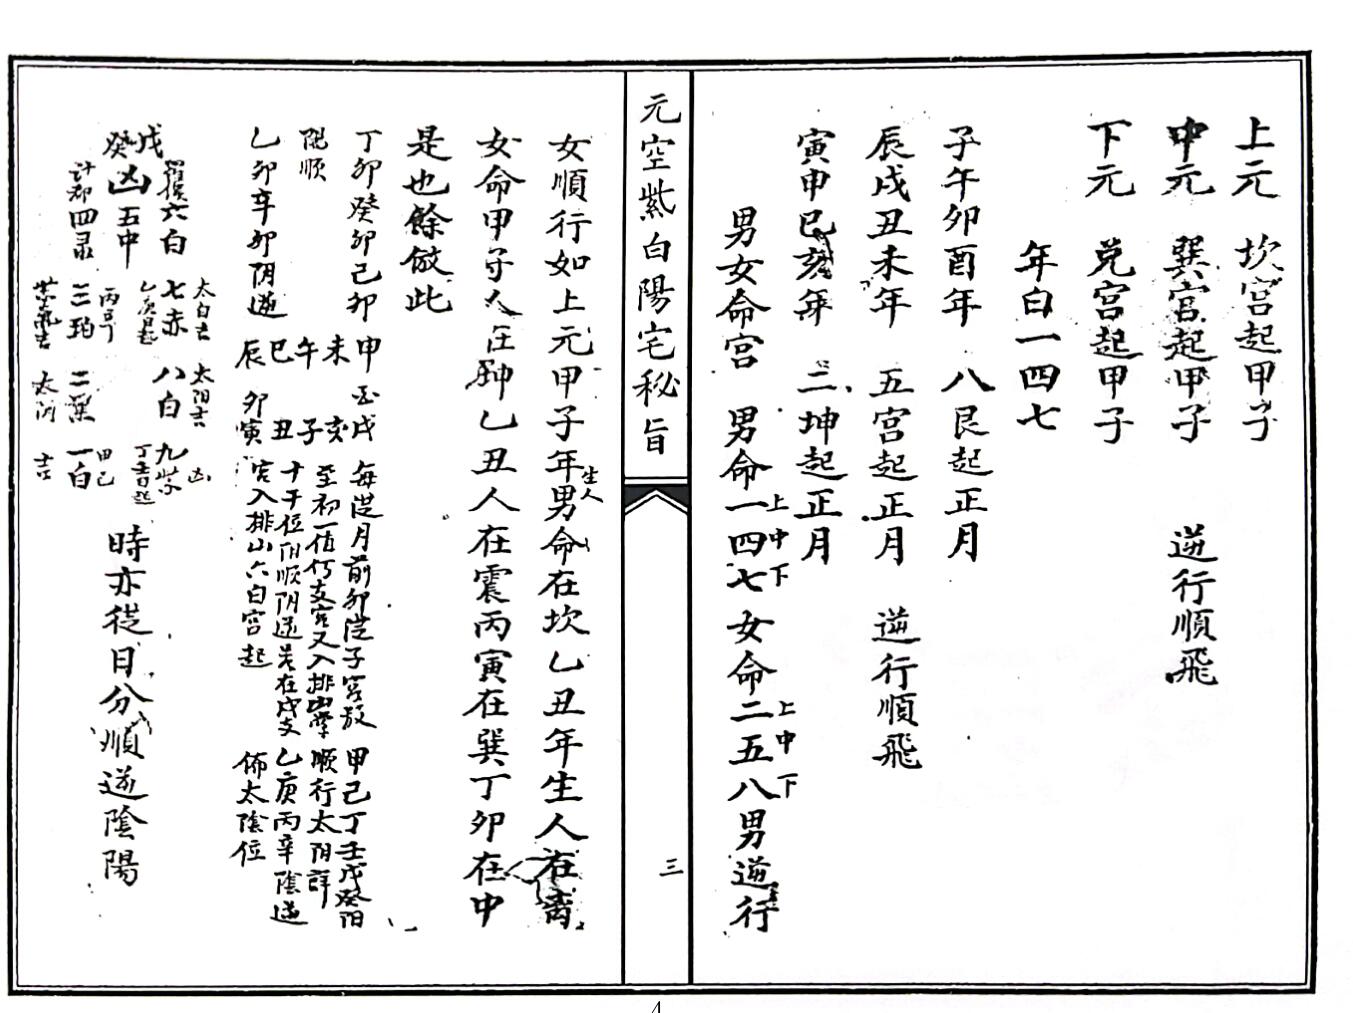 上元　坎宮起甲子
中元　巽宮起甲子　逆行順飛
下元　兌宮起甲子
年白一四七
子午卯酉年　八艮起正月
辰戌丑未年　五宮起正月　逆行順飛
寅申巳亥年　二坤起正月
男女命宮　男命一四七女命二五八男逆行
上中下
上中下
元空紫白陽宅秘旨
三
女順行如上元甲子年男命在坎乙丑年生人在离
生人
女命甲子人在坤乙丑人在震丙寅在巽丁卯在中
是也餘倣此
丁卯癸卯己卯
阳順
乙卯辛卯阴逆
申
未
午
巳
辰
酉戌
亥
子
丑
卯寅
每従月前卯従子宮数
至初一值何支宮又入排山掌
十干位阳順阴逆
宮入排山六白宮起
甲己丁壬戊癸阳
順行太阴詳
乙庚丙辛陰逆
佈太陰位
戊
癸凶
羅侯六白
五中
計都四录
太白吉
七赤
三珀
太阳吉
八白
二黑
太阴
凶
九紫
甲己
一白
吉
時亦従日分順逆陰陽
4